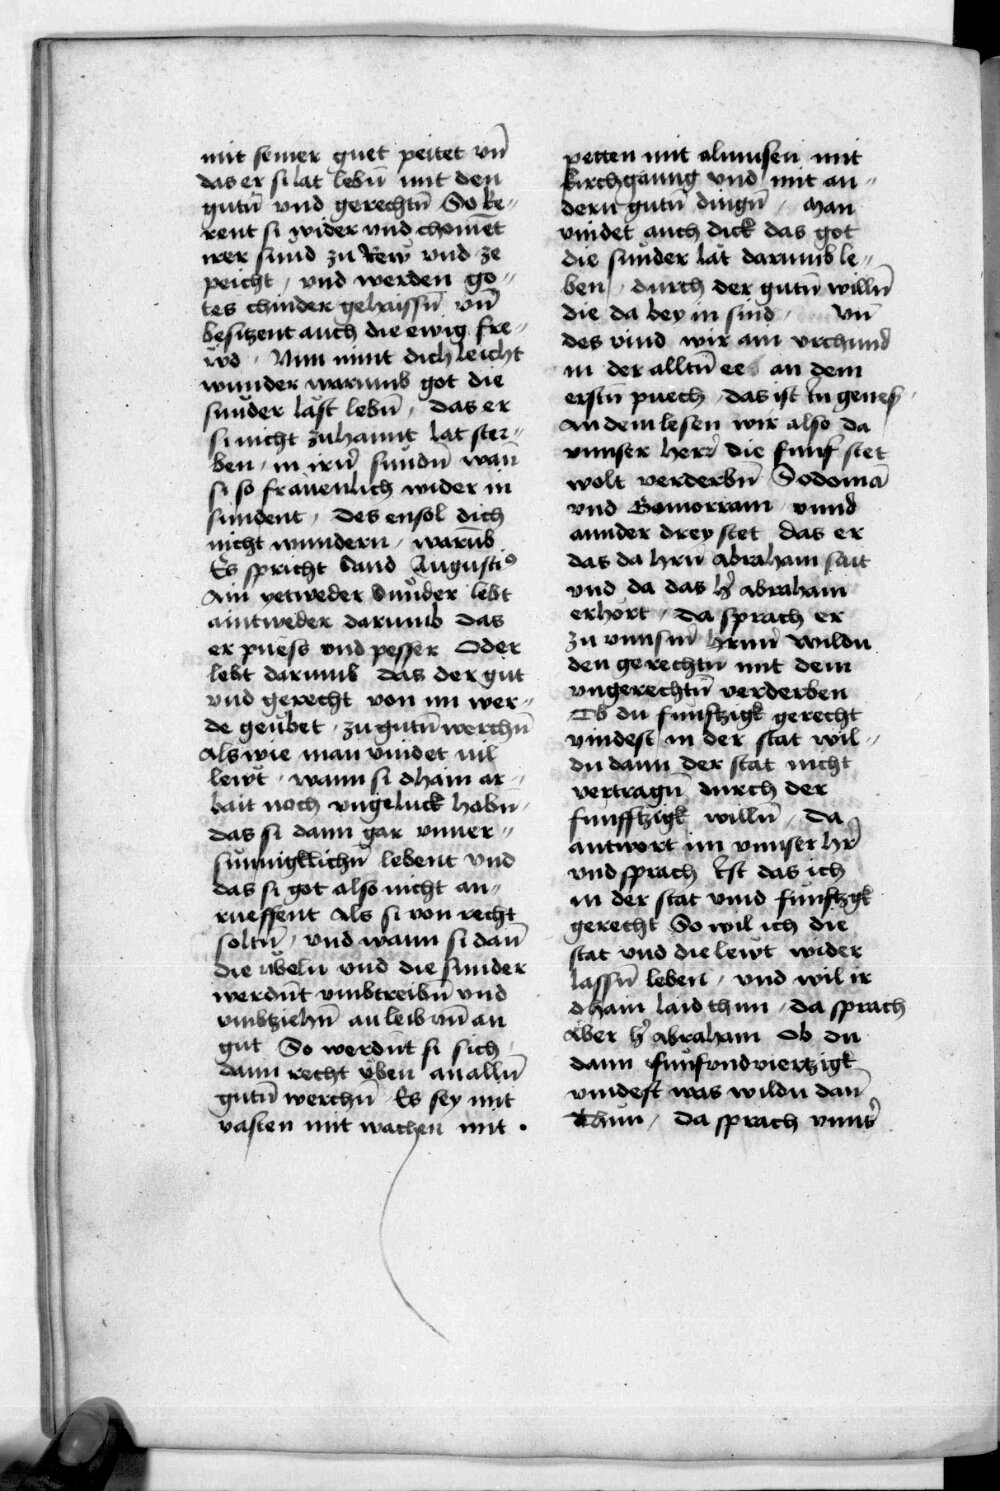 mit seiner guet peitet vn̄
das er si lat lebn̄ mit den
gutn̄ vnd gerechtn̄ So ke-
rent si wider vnd chome͞t
irer sund zu Rew vnd ze
peicht / vnd werden go-
tes chinder gehaissn̄ vn̄
besitzent auch die ewig fre-
wd / Nun nimt dich leicht
wunder warumb got die
sunder last lebn̄ / das er
si nicht zuhannt lat ster-
ben / in irn̄ sundn̄ wan̄
si so frauenlich wider in
sundent / Des ensol dich
nicht wundern / warūb
Es spricht sand Augusti⁹
Ain yetweder Sunder lebt
aintweder darumb das
er puess vnd pesser Oder
lebt darumb das der gut
vnd gerecht von im wer-
de geubet / zu gutn̄ werchn̄
Als wie man vindet vil
lewt / wann si dhain ar-
bait noch vngeluck habn̄ /
das si dann gar vnuer-
sunnigklichn̄ lebent vnd
das si got also nicht an-
rueffent Als si von recht
soltn̄ / vnd wann si dan̄
die vbeln vnd die sunder
werdn̄t vmbtreibn̄ vnd
vmbziehn̄ an leib vn̄ an
gut So werdnt si sich
dann recht vben an alln̄
gutn̄ werchn̄ Es sey mit
vasten mit wachen mit
petten mit almusen mit
kirchganng vnd mit an-
dern gutn̄ dingn̄ / Man
vindet auch dick das got
die sunder lat darumb le-
ben / durch der gutn̄ willn̄
die da bey in sind / Vn̄
des vind wir ain vrchund
in der alltn̄ ee an dem
erstn̄ puech / das ist in genesy /
An dem lesen wir also da
vnnser herr die funf stet
wolt verderbn̄ Sodomā
vnd Gomorram vnnd
annder drey stet das er
das da hrn̄ Abraham sait
vnd da das hr̄ abraham
erhort / Da sprach er
zu vnnsm̄ hrnn̄ Wildu
den gerechtn̄ mit dem
vngerechtn̄ verderben
Ob du funftzigk gerecht
vindest in der stat wil-
du dann der stat nicht
vertragn̄ durch der
funfftzigk willn̄ / Da
antwort im vnnser hr̄
vnd sprach Est das ich
in der stat vind funftzgk
gerecht So wil ich die
stat vnd die lewt wider
lassn̄ leben / vnd wil ir
dhain laid thun / Da sprach
Aber hr̄ abraham Ob du
dann funfundviertzigk
vindest was wildu dan̄
Thun / Da sprach vnns̄